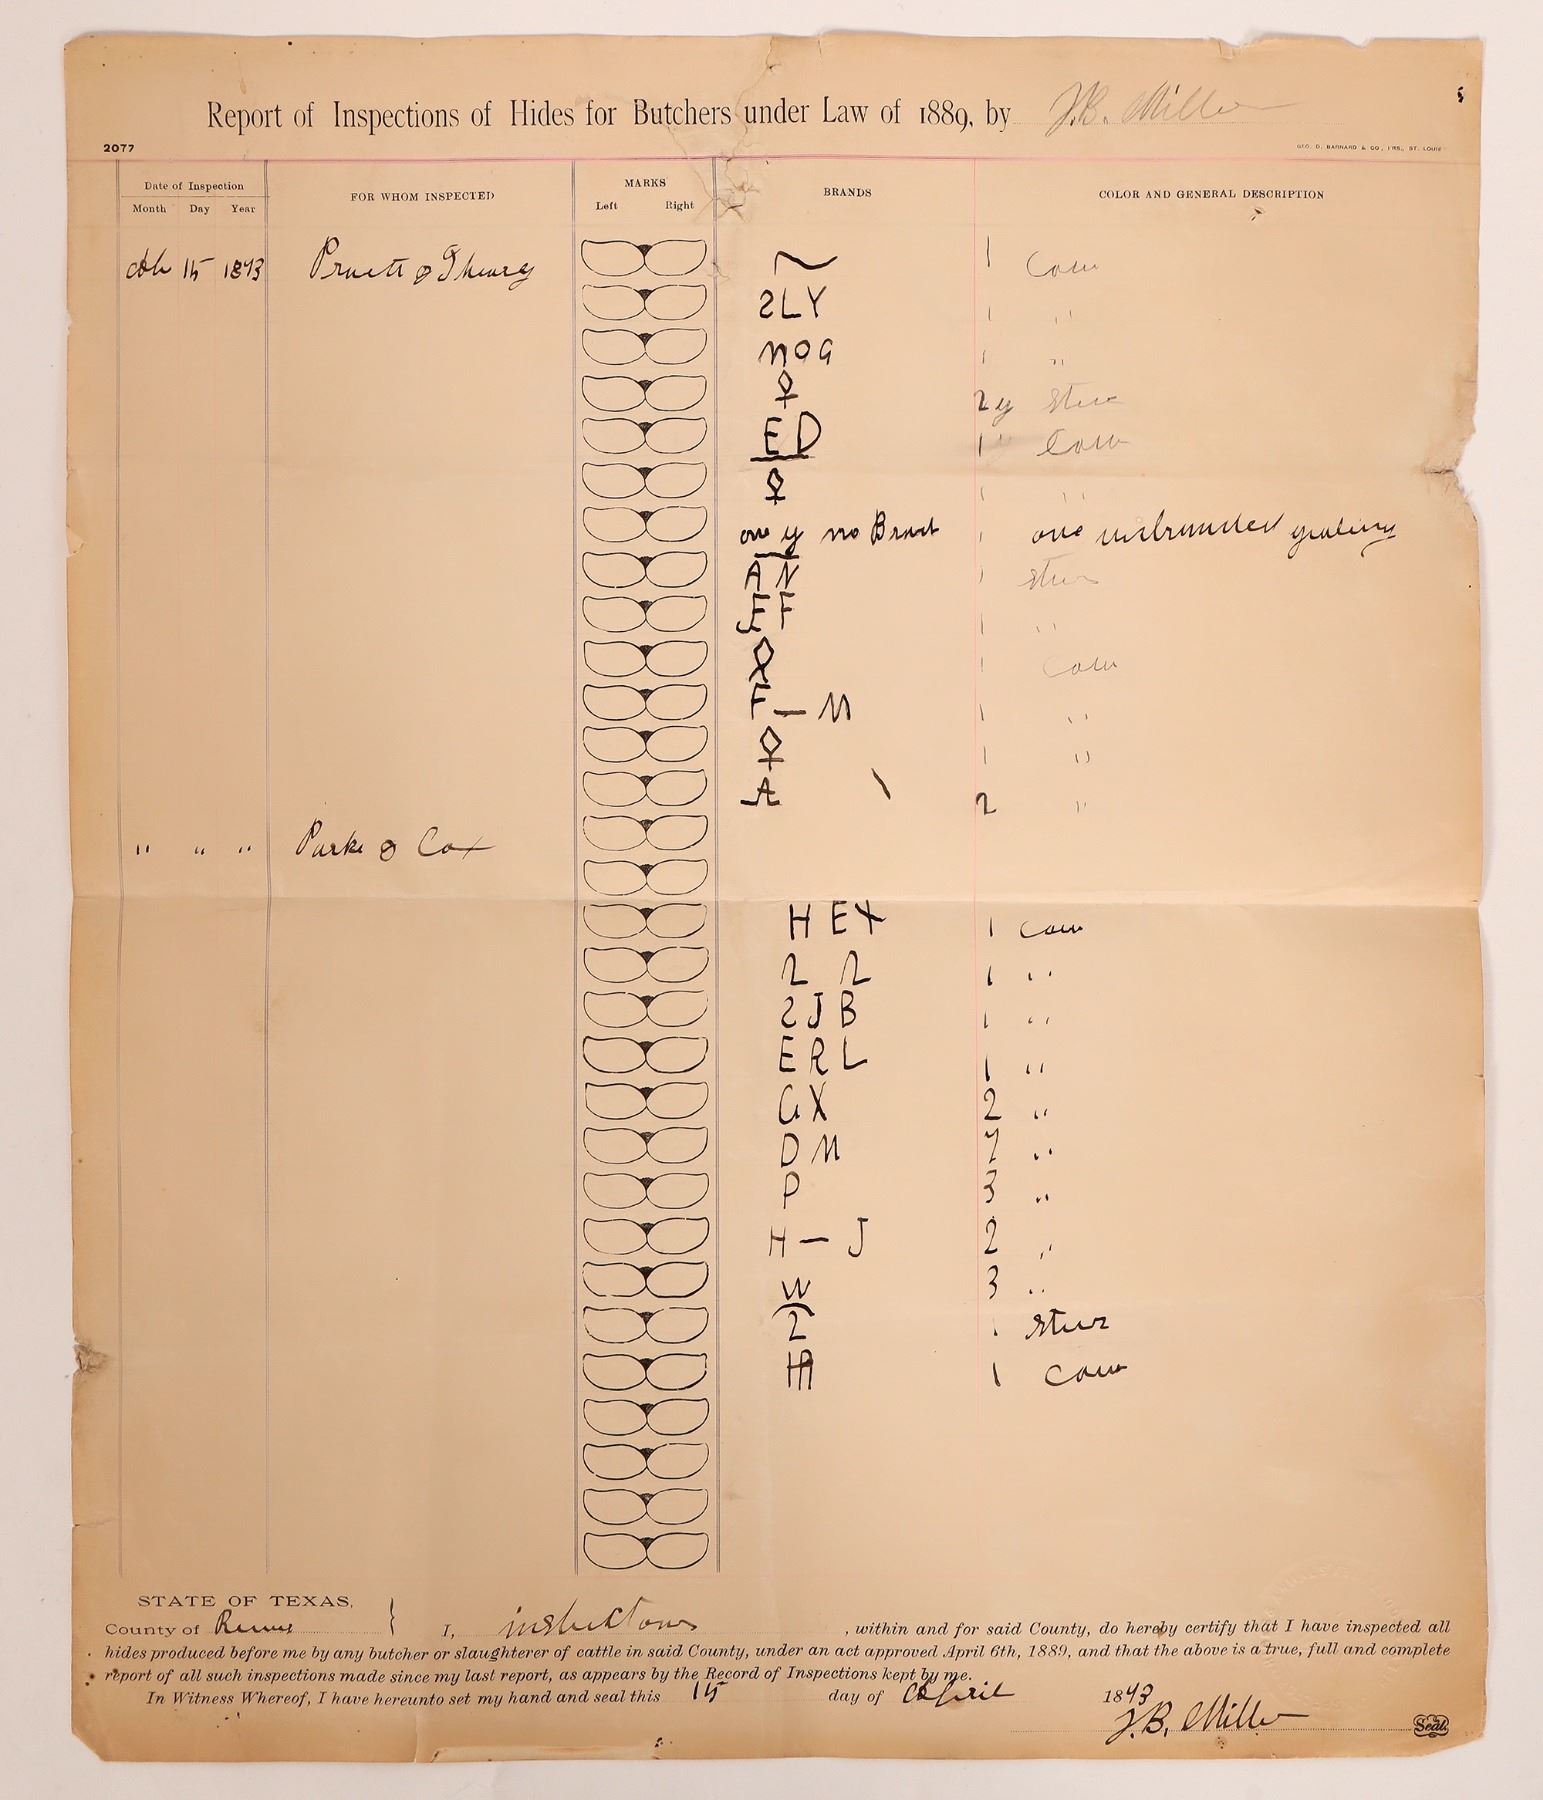 Report of Inspections of Hides for Butchers under Law of 1889, by J.B. Miller
2077
GEO. D. BARNARD & CO., PRS., ST. LOUIS
Date of Inspection
FOR WHOM INSPECTED
MARKS
BRANDS
COLOR AND GENERAL DESCRIPTION
Month Day Year
Left Right
15 1893 Pruett & 1 Cow
2LY 1 "
NOG 1 "
2 y Steer
ED 1 " Cow
1 "
one y no Brand 1 one unbranded yearling
AN 1 Steer
FF 1 "
1 Cow
F — M 1 "
1 "
A \ 2 "
" " " Parke & Cox
HEX 1 Cow
2 2 1 "
2JB 1 "
ERL 1 "
GX 2 "
DM 7 "
P 3 "
H — J 2 "
W 3 "
2 1 Steer
HA 1 Cow
STATE OF TEXAS,
County of Reeves } I, , within and for said County, do hereby certify that I have inspected all
hides produced before me by any butcher or slaughterer of cattle in said County, under an act approved April 6th, 1889, and that the above is a true, full and complete
report of all such inspections made since my last report, as appears by the Record of Inspections kept by me.
In Witness Whereof, I have hereunto set my hand and seal this 15 day of April 1893
J.B. Miller Seal.